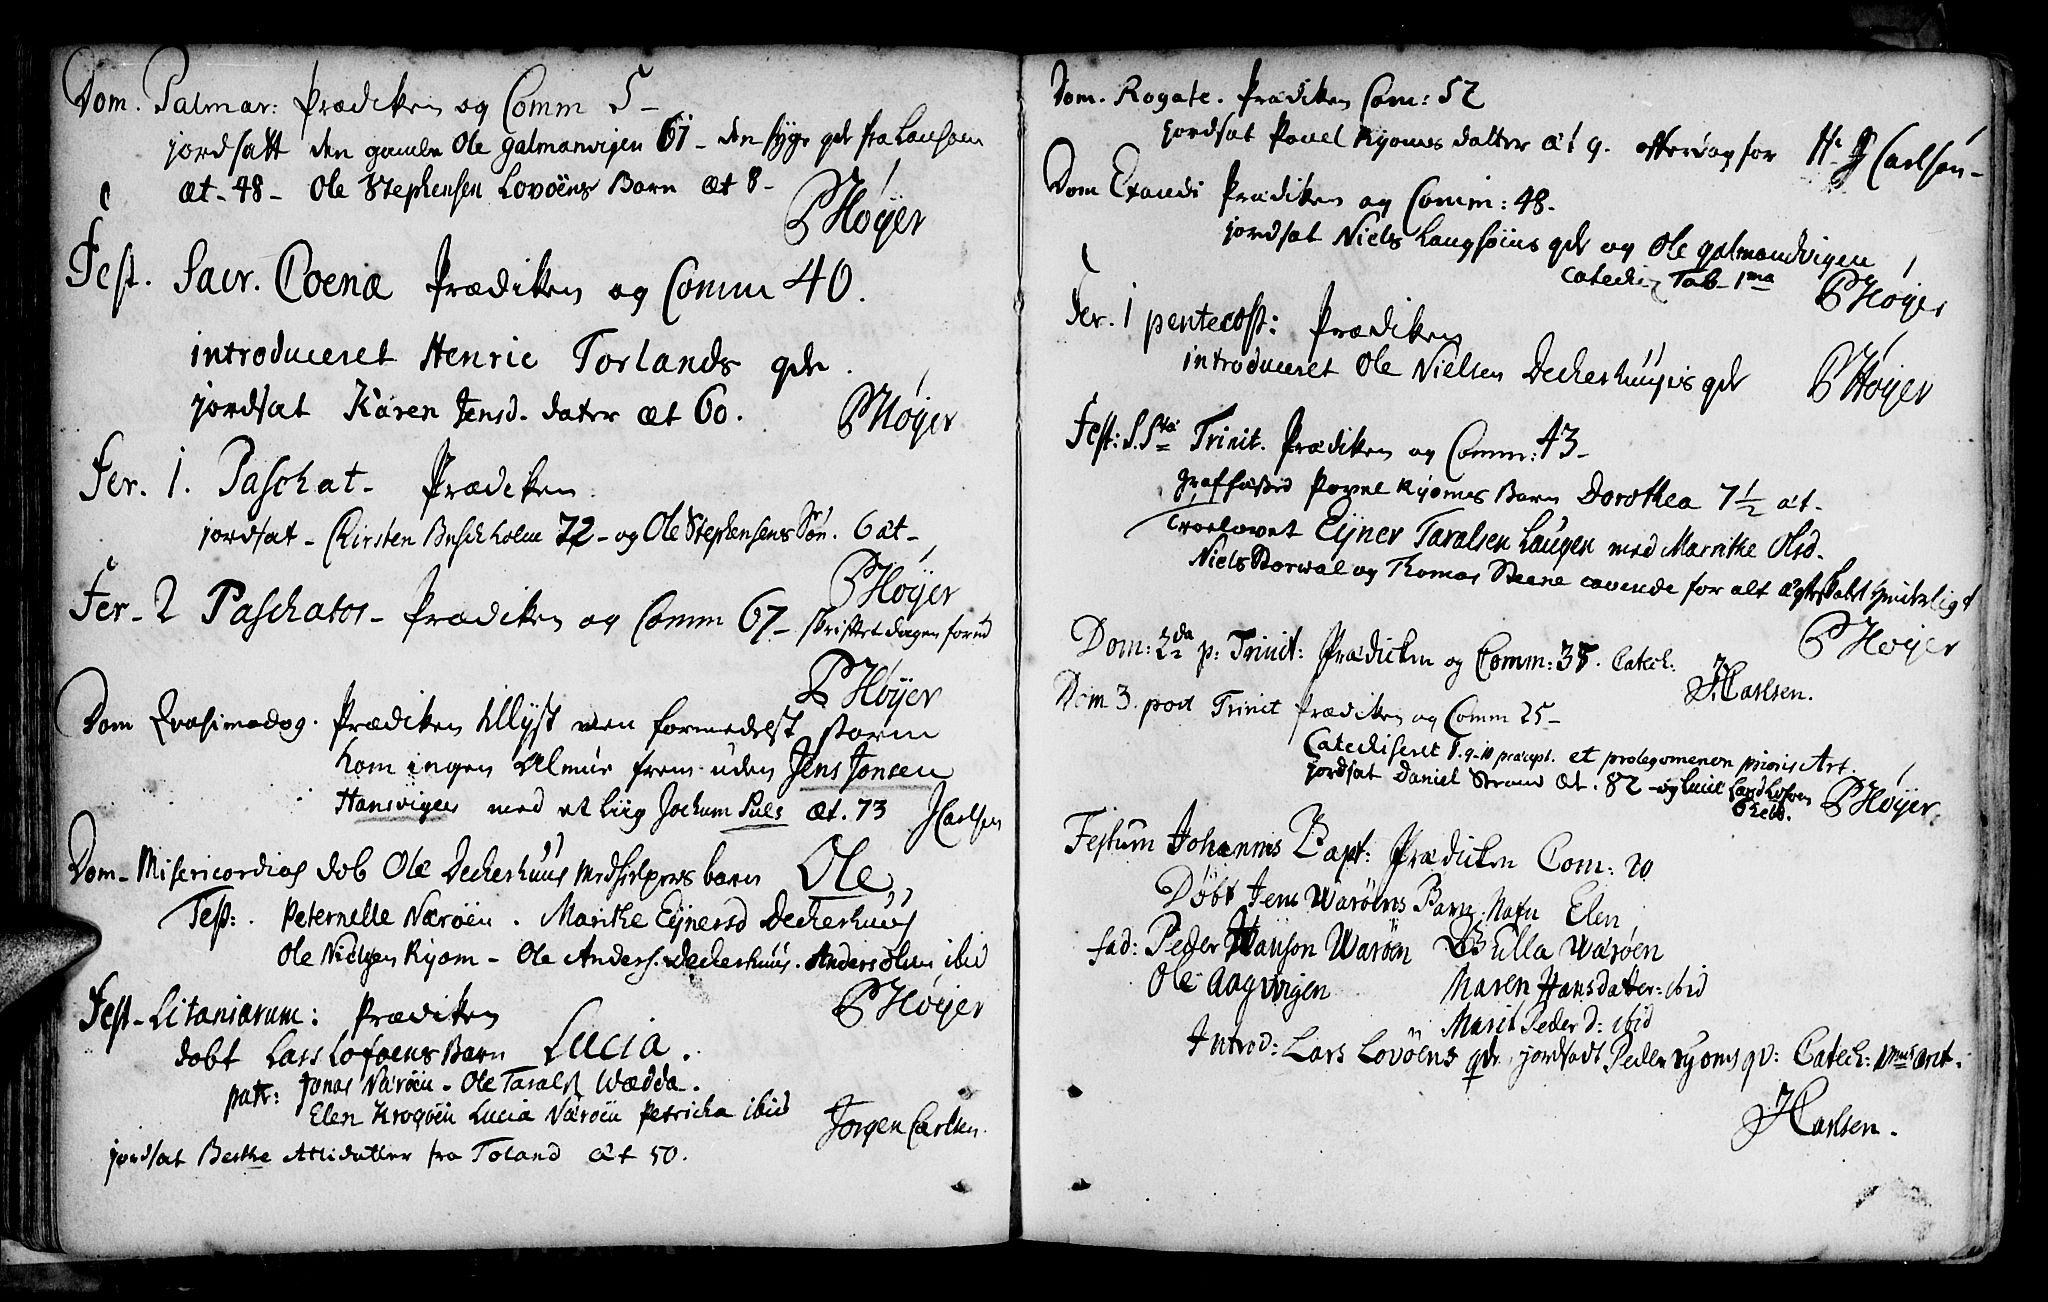 Dom. Palmar: Prædiken og Comm 5-
jordsatt den gamle Ole galmanvigen 61 - den syge qde fra
æt - 48 - Ole Stephensen Lovöens Barn æt 8 -
PHøyer
Fest. Sacr. Coenæ Prædiken og Comm 40.
introduceret Henric Torlands qde.
jordsat Karen Jensd. dater æt 60.
PHøyer
Fer. 1. Paschat - Prædiken.
jordsat - Kirsten Buschholm 72 - og Ole Stephensens Søn. 6 æt -
PHøyer
Fer - 2 Paschatos - Prædiken og Comm 67 - skriftet dagen forud
PHøyer
Dom Qvasimodog. Prædiken men formedelst storm
kom ingen Almue frem uden Jens Jonsen
Hansvigen med et Liig Jochum Puls æt. 73
JCarlsen
Dom - Misericordias dob Ole Deckerhuus Medhielpers barn Ole,
Test: Peternelle Næröen. Marithe Eynersd Deckerhuus
Ole Nielsen Ryom - Ole Anders. Deckerhuus. Anders Olsen ibid
PHøyer
Fest - Litaniarum: Prædiken
døbt Lars Lofoens Barn Lucia.
patr: Jonas Næröen - Ole Taralds Wædda.
Elen Krogöen Lucia Næröen Petricha ibid
Jørgen Carlsen.
jordsat Berthe datter fra Toland æt 50.
Dom. Rogate. Prædiken Com: 52
jordsat Povel Ryomes datter æt 9. efterdag for Hr J Carlsen -
Dom Exaudi Prædiken og Comm: 48.
jordsat Niels Laugsöens qde og Ole galmandvigen
Catechiz Tab - 1ma
PHøyer
Fer. 1 pentecost: Prædiken
introduceret Ole Nielsen Deckerhuusis qde
PHøyer
Fest: S. Stæ Trinit. Prædiken og Comm: 43 -
graffæstid Povel Ryomes Barn Dorothea 7 1/2 æt -
troelovet Eyner Taralsen Laugen med Marithe Olsd.
Niels Storwal og Thomas Steene cavende for alt ægteskabet
PHøyer
Dom: 2da p: Trinit: Prædicken og Comm: 35. Catech:
JCarlsen.
Dom 3. post Trinit Prædiken og Comm 25 -
Catechiseret 8. 9. 10 præcept. et prolegomenon prioris Art.
jordsat Daniel Strand æt. 82 - og
PHøyer.
Festum Johannis Bapt: Prædicken Com: 20
Døbt Jens Waröens Barn. Nafn Elen
fad: Peder Hanson Waröen Gulla Waröen
Ole Aagvigen Maren Hansdatter: ibid
Marit Peder D: ibid
Introd: Lars Lovöens qde jordsadt Peder ryoms qv: Catech:
JCarlsen.